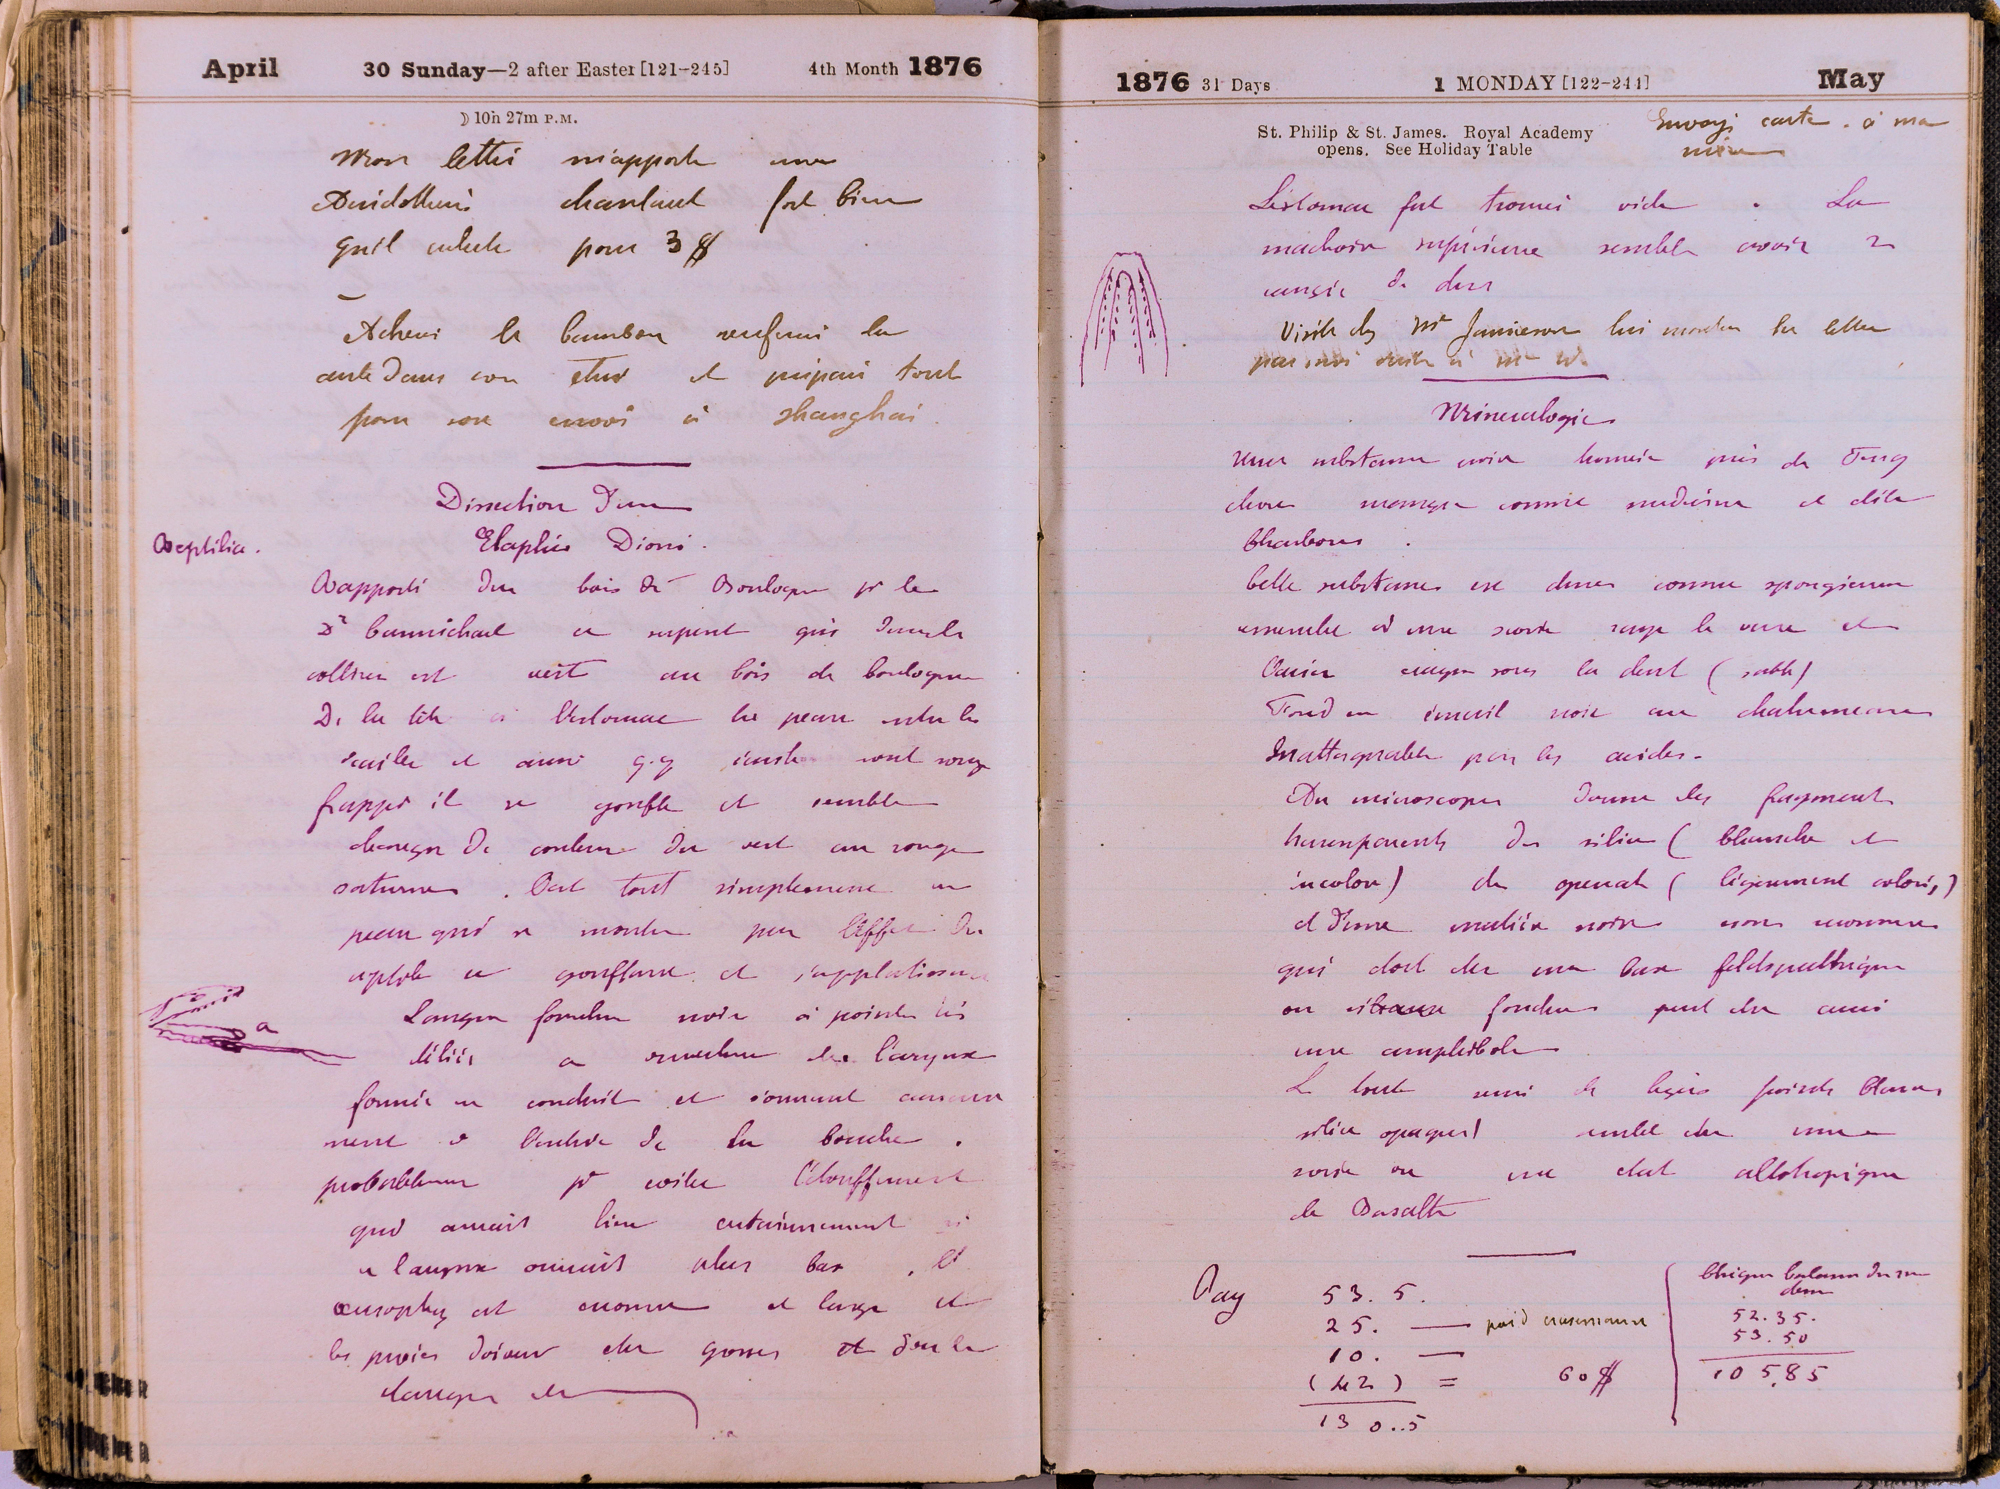 April 30 Sunday—2 after Easter [121-245] 4th Month 1876
☽ 10h 27m P.M.
Mon lettré m'apporte une
chantant fort bien
qu'il achete pour 3 $
Acheve le bambou renfermé la
carte dans son etui et préparé tout
pour son envoi à Shanghai.
Dissection d'un
Elaphis Dioni.
Reptilia.
Rapporté du bois de Boulogne pr le
Dr Carmichael ce serpent qui dans la
colline est vert au bois de boulogne
De la tête à l'estomac la peau entre les
écailles et aussi q.q. sont rouge
frappé il se gonfle et semble
changer de couleur du vert au rouge
saturne. C'est tout simplement sa
peau qui se montre par l'effet du
reptile se gonflant et s'applatissant
Langue fourchue noire à pointes très
déliées a ouverture du larynx
formée en conduit et s'ouvrant
à l'entrée de la bouche.
probablement pr eviter l'étouffement
qui aurait lieu certainement si
le larynx ouvrait plus bas. L'
oesophag est enorme et large et
les proies doivent etre grosses et
a
1876 31 Days 1 MONDAY [122-244] May
St. Philip & St. James. Royal Academy
opens. See Holiday Table
Envoyé carte à ma
mère
L'estomac fut trouvé vide. La
machoire supérieure semble avoir 2
rangées de dents
Visite chez Mr Jamieson lui montre la lettre
par moi ecrite à Mr W.
Mineralogie
Une substance noire trouvée près de Teng
chow mangée comme medecine et dite
Charbons.
Cette substance est dure comme spongieuse
ressemble à une scorie raye le verre et
l'acier craque sous la dent (sable)
Fond en émail noir au chalumeau
Inattaquable par les acides.
Au microscope donne des fragments
transparents de silice (blanche et
incolore) de (légerement coloré,)
et d'une matière noire non reconnue
qui doit etre une base feldspathique
ou fondue peut etre aussi
une amphibole
Le tout semé de légers points blancs
silice opaque) semble etre une
scorie ou un etat allotropique
de Basalte
Pay 53. 5.
25. — paid
10. —
(42) = 60 $
130..5
52.35.
53.50
105.85